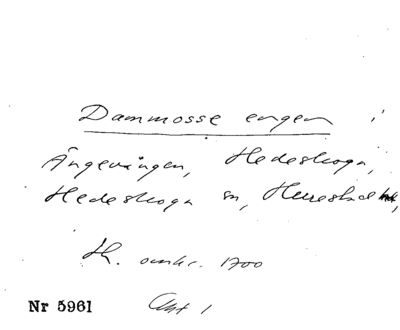 Dammosse engen i
Ängavången, Hedeskoga,
Hedeskoga sn, Herrestad
h. omkr. 1700
Nr 5961
Akt 1